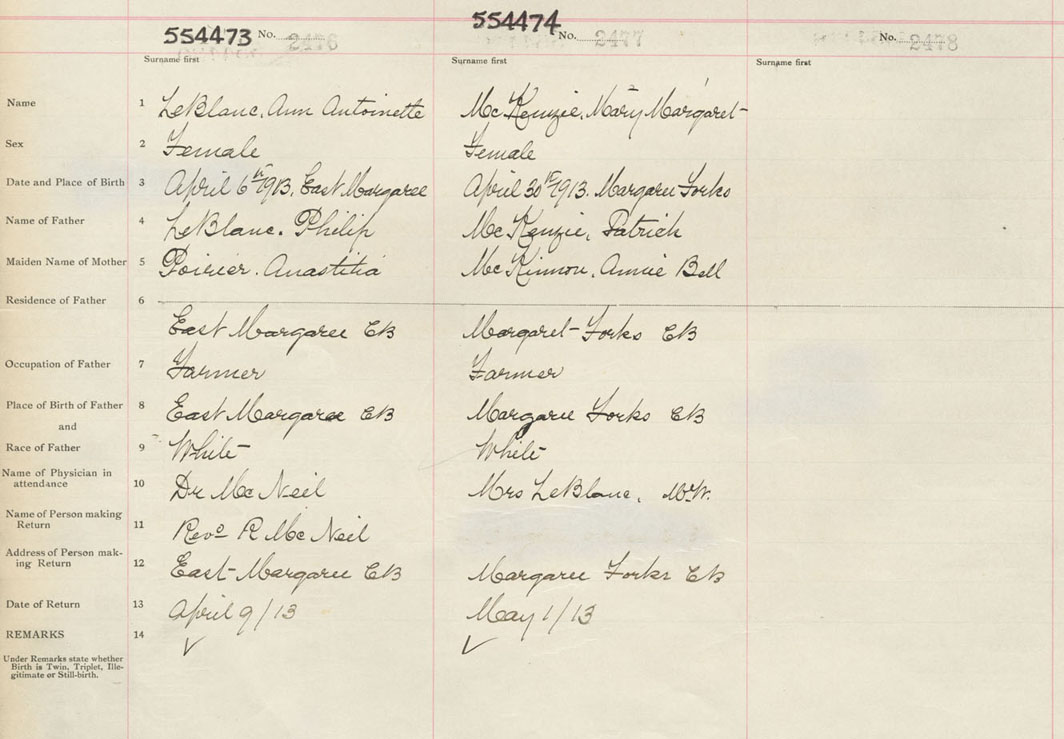 554473 No. 2476
554474 No. 2477
No. 2478
Surname first
Surname first
Surname first
Name 1 LeBlanc, Ann Antoinette Mc Kenzie, Mary Margaret
Sex 2 Female Female
Date and Place of Birth 3 April 6th 1913. East Margaree April 30th 1913. Margaree Forks
Name of Father 4 LeBlanc. Philip Mc Kenzie, Patrick
Maiden Name of Mother 5 Poirier. Anastitia Mc Kinnon, Annie Bell
Residence of Father 6
East Margaree CB Margaret Forks CB
Occupation of Father 7 Farmer Farmer
Place of Birth of Father 8 East Margaree CB Margaree Forks CB
and
Race of Father 9 White White
Name of Physician in
attendance 10 Dr Mc Neil Mrs LeBlanc, M.W.
Name of Person making
Return 11 Revd R Mc Neil
Address of Person mak-
ing Return 12 East Margaree CB Margaree Forks CB
Date of Return 13 April 9/13 May 1/13
REMARKS 14 √ √
Under Remarks state whether
Birth is Twin, Triplet, Ille-
gitimate or Still-birth.